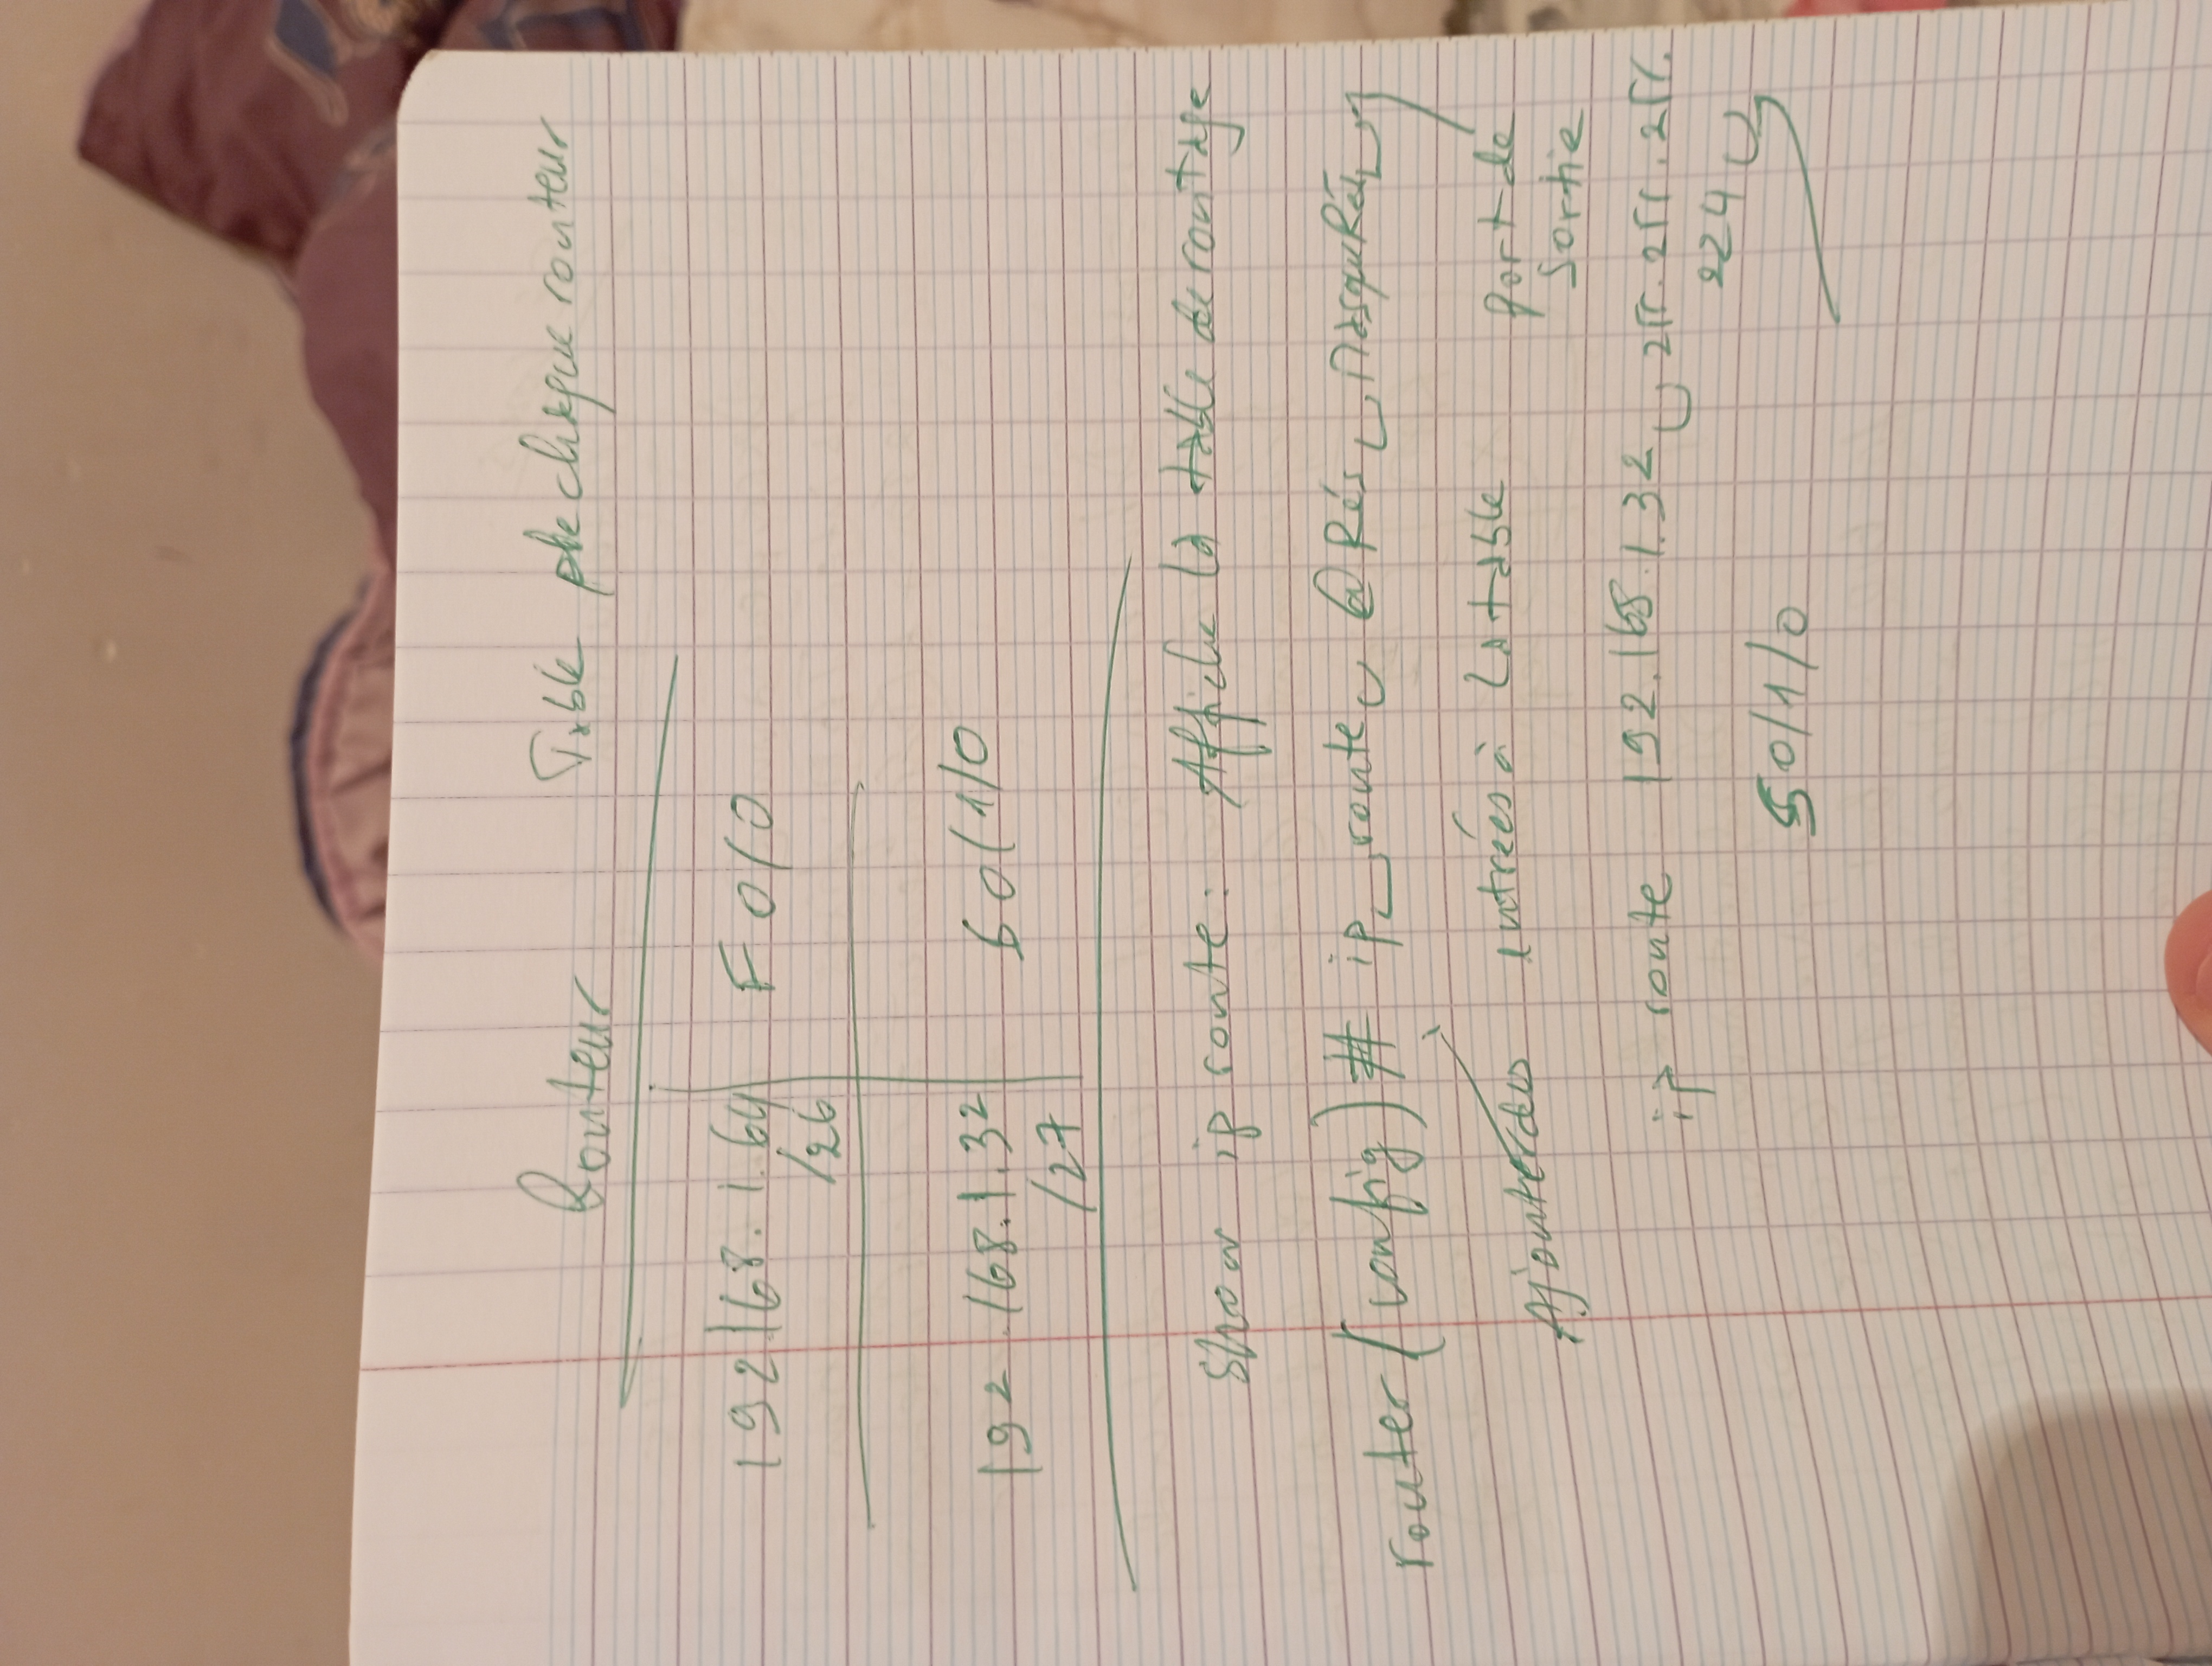 Routeur Table de chaque routeur
192.168.1.64 F 0/0
/26
192.168.1.32 S0/1/0
/27
Show ip route : Affiche la table de routage
router(config)# ip route @Rés MasqueRés
Ajouter des entrées à la table port de
sortie
ip route 192.168.1.32 255.255.255.
224
S0/1/0